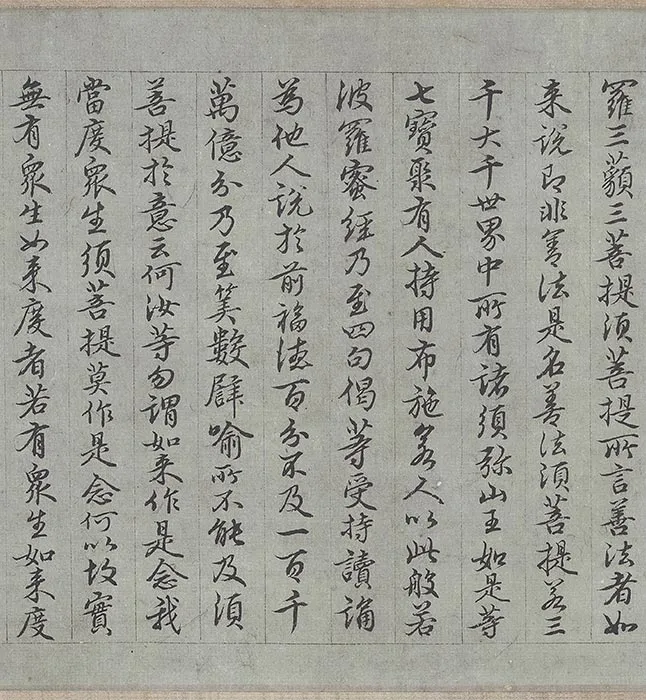 羅三藐三菩提須菩提所言善法者如
來說即非善法是名善法須菩提若三
千大千世界中所有諸須弥山王如是等
七寶聚有人持用布施若人以此般若
波羅蜜經乃至四句偈等受持讀誦
為他人說於前福德百分不及一百千
萬億分乃至筭數譬喻所不能及須
菩提於意云何汝等勿謂如來作是念我
當度衆生須菩提莫作是念何以故實
無有衆生如來度者若有衆生如來度